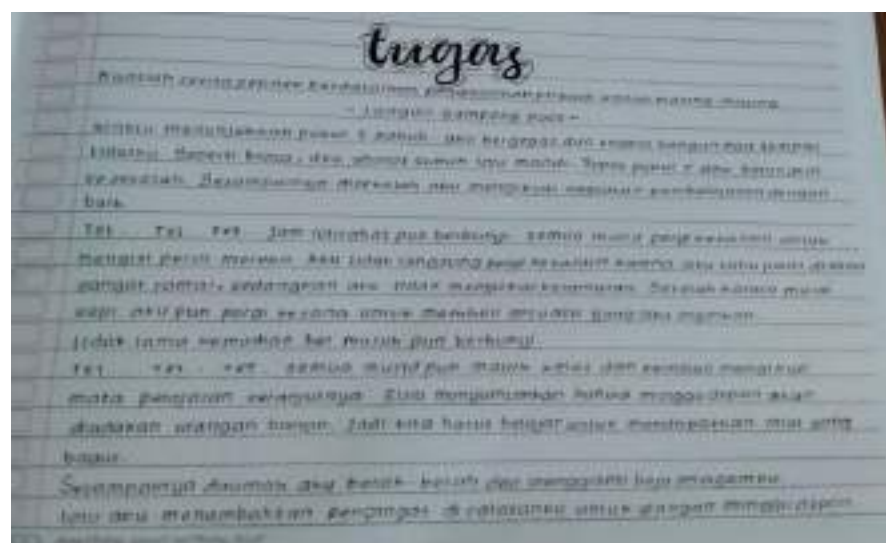 tugas
Buatlah cerita pendek berdasarkan pengalaman pribadi masing masing
- Jangan gampang puas -
Waktu menunjukkan pukul 5 aku bergegas dan segera bangun dari tempat
tidurku. Seperti biasa, aku sholat subuh lalu mandi. Tepat pukul 7 aku berangkat
ke sekolah. Sesampainya disekolah aku mengikuti kegiatan pembelajaran dengan
baik.
Tet Tet Tet Jam istirahat pun berbunyi. semua murid pergi kekantin untuk
mengisi perut mereka. Aku tidak langsung pergi kekantin karena aku tahu pasti disana
sangat ramai, sedangkan aku tidak menyukai keramaian. Setelah kantin mulai
sepi aku pun pergi kesana untuk membeli sesuatu yang aku inginkan.
tidak lama kemudian bel masuk pun berbunyi.
tet tet tet semua murid pun masuk kelas dan kembali mengikuti
mata pelajaran selanjutnya. Guru mengumumkan bahwa minggu depan akan
diadakan ulangan harian. Jadi kita harus belajar untuk mendapatkan nilai yang
bagus.
Sesampainya dirumah aku bersih bersih dan mengganti baju seragamku
lalu aku menambahkan pengingat di catatanku untuk ulangan minggu depan